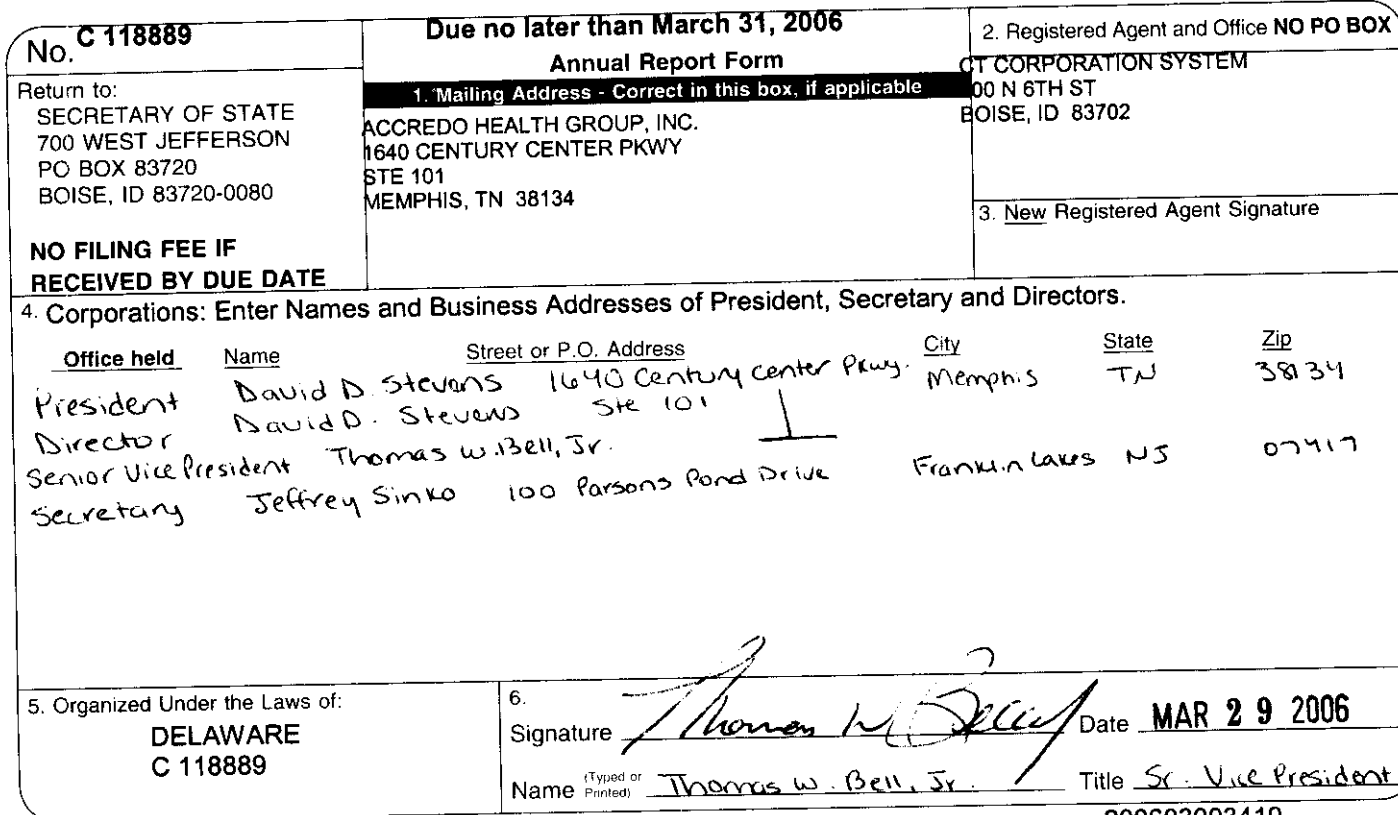 No. C 118889
Due no later than March 31, 2006
Annual Report Form
Return to:
SECRETARY OF STATE
700 WEST JEFFERSON
PO BOX 83720
BOISE, ID 83720-0080
NO FILING FEE IF
RECEIVED BY DUE DATE
1. Mailing Address - Correct in this box, if applicable
ACCREDO HEALTH GROUP, INC.
1640 CENTURY CENTER PKWY
STE 101
MEMPHIS, TN 38134
2. Registered Agent and Office NO PO BOX
CT CORPORATION SYSTEM
00 N 6TH ST
BOISE, ID 83702
3. New Registered Agent Signature
4. Corporations: Enter Names and Business Addresses of President, Secretary and Directors.
Office held Name Street or P.O. Address City State Zip
President David D. Stevens 1640 Century Center Pkwy. Memphis TN 38134
Director David D. Stevens Ste 101
Senior Vice President Thomas W. Bell, Jr.
Secretary Jeffrey Sinko 100 Parsons Pond Drive Franklin Lakes NJ 07417
5. Organized Under the Laws of:
DELAWARE
C 118889
6.
Signature Thomas W Bell Jr Date MAR 29 2006
Name (Typed or Printed) Thomas W. Bell, Jr. Title Sr. Vice President